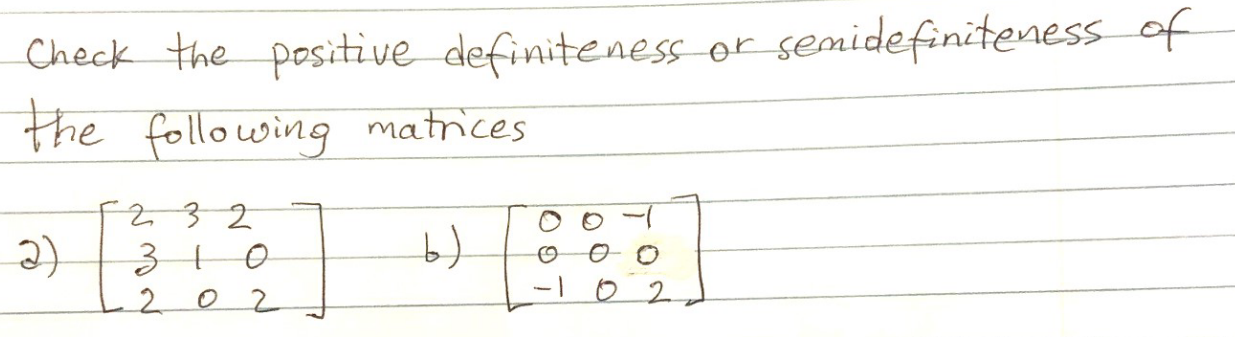 Check the positive definiteness or semidefiniteness of
the following matrices
a) [2 3 2 b) [0 0 -1
3 1 0 0 0 0
2 0 2] -1 0 2]